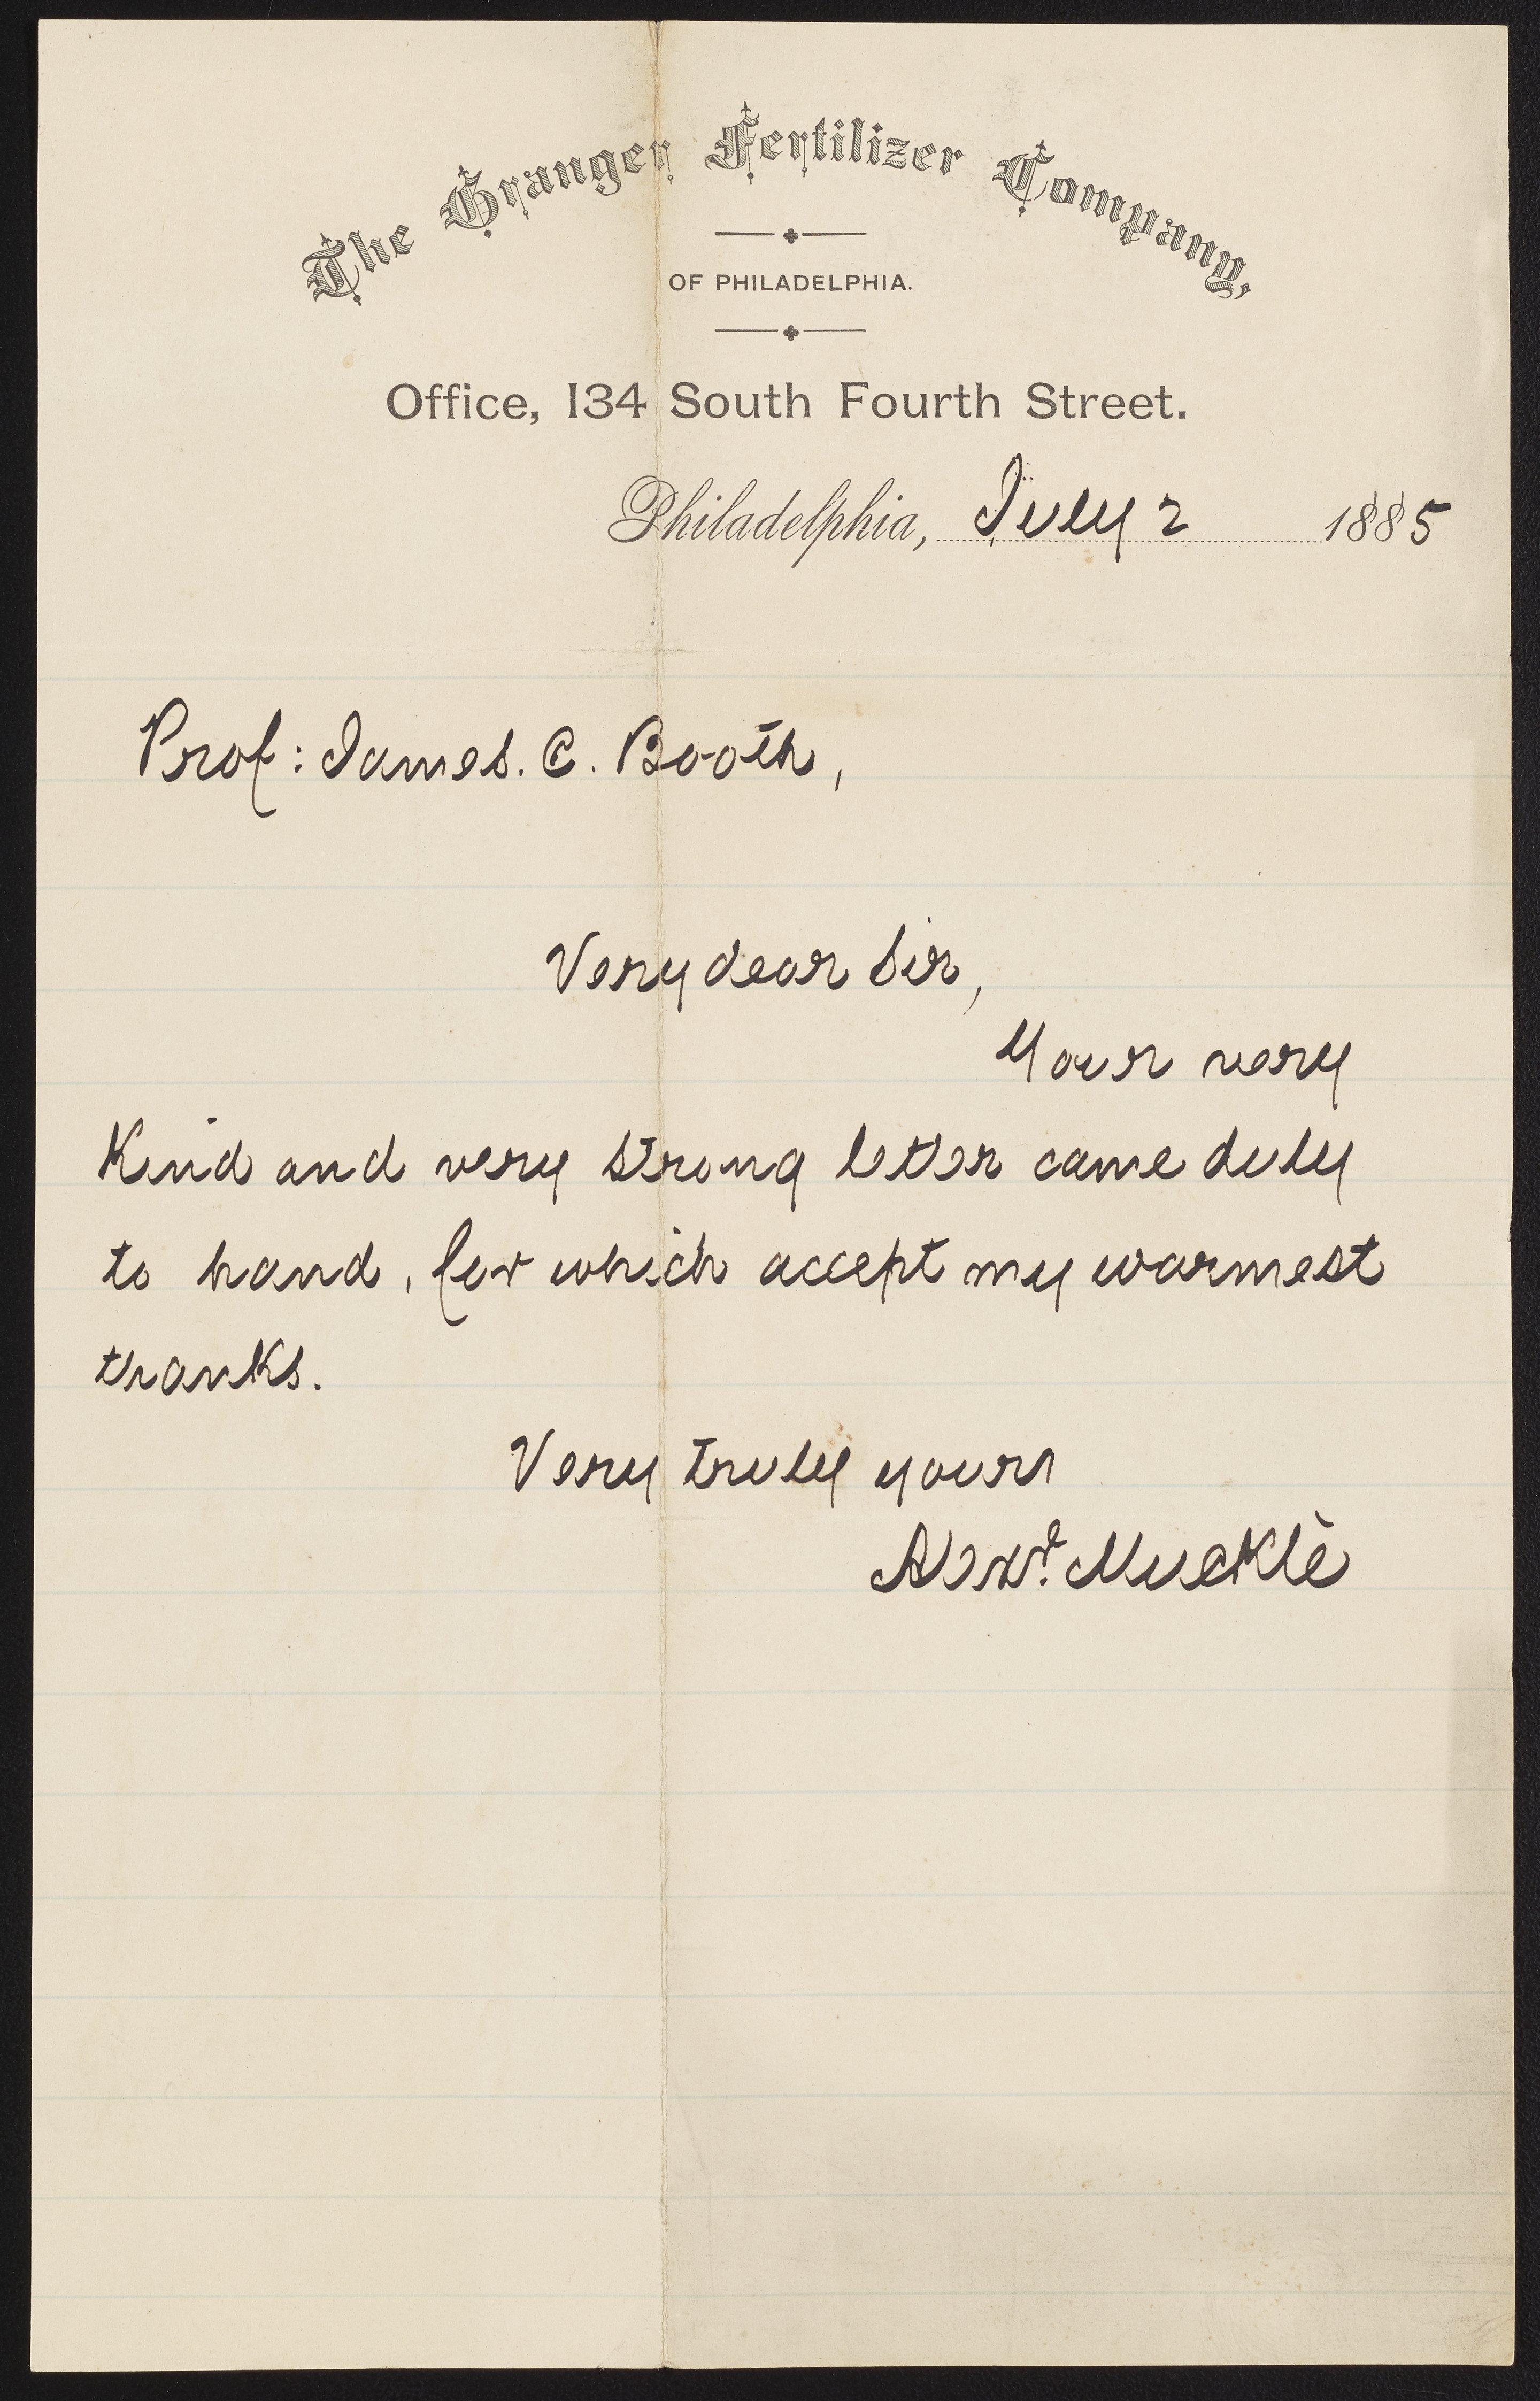 The Granger Fertilizer Company,
OF PHILADELPHIA.
Office, 134 South Fourth Street.
Philadelphia, July 2 1885
Prof: James. C. Booth,
Very dear Sir,
Your very
Kind and very strong letter came duly
to hand, for which accept my warmest
thanks.
Very truly yours
Alexr. Mucklè